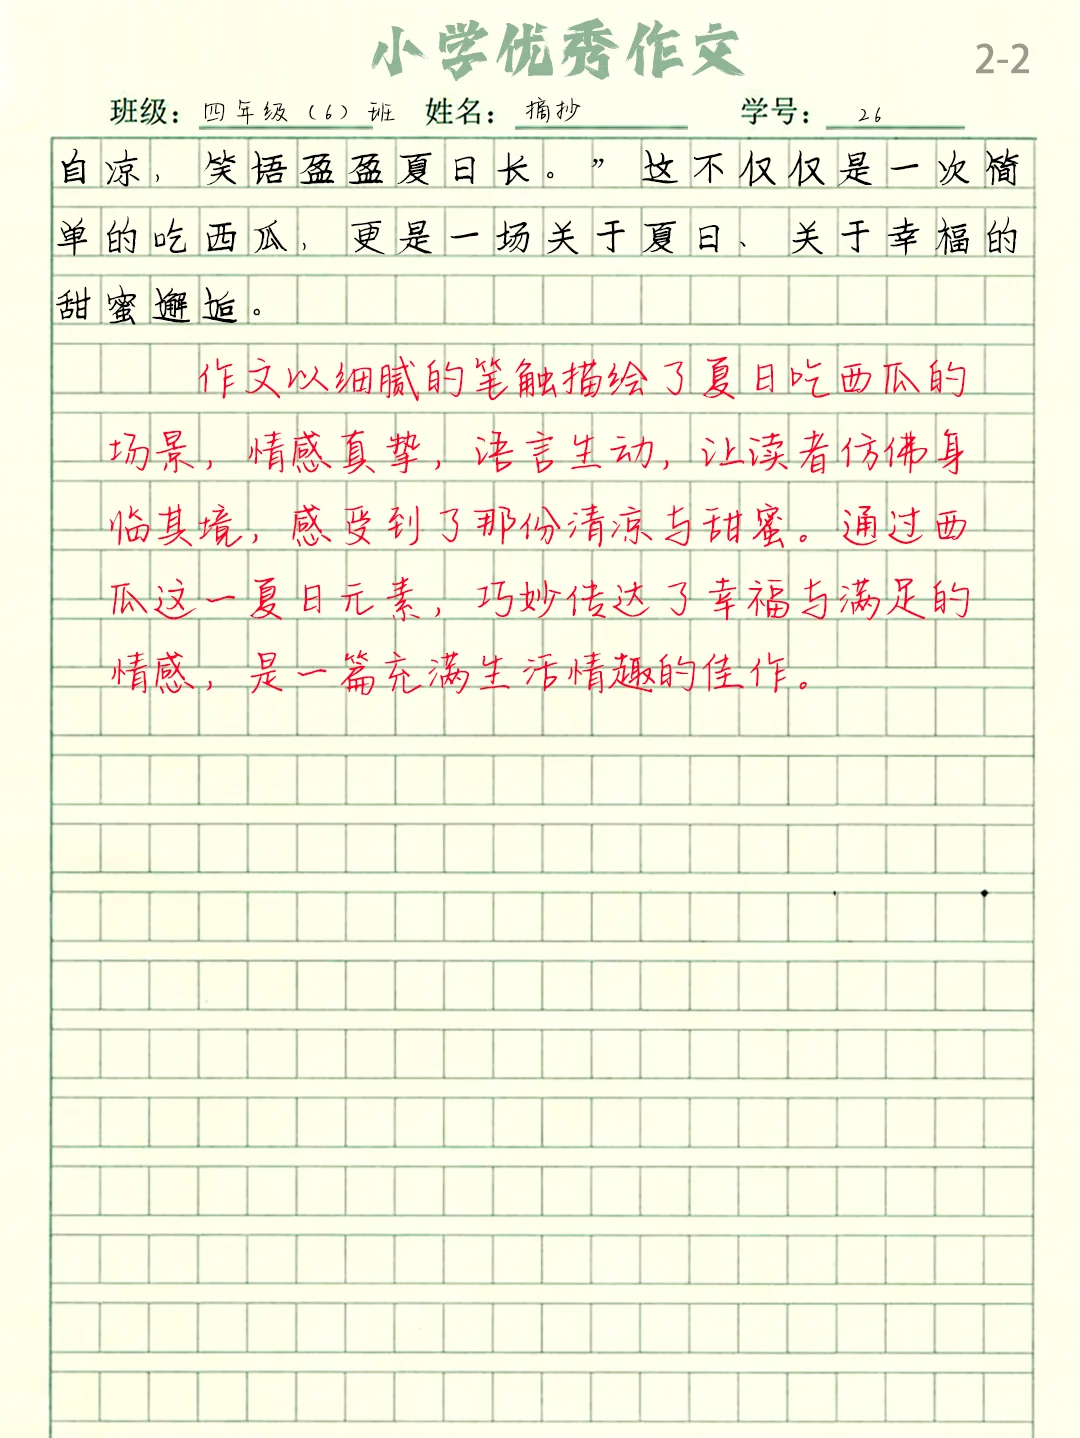 小学优秀作文
2-2
班级：四年级（6）班 姓名：摘抄 学号：26
自凉，笑语盈盈夏日长。”这不仅仅是一次简
单的吃西瓜，更是一场关于夏日、关于幸福的
甜蜜邂逅。
作文以细腻的笔触描绘了夏日吃西瓜的
场景，情感真挚，语言生动，让读者仿佛身
临其境，感受到了那份清凉与甜蜜。通过西
瓜这一夏日元素，巧妙传达了幸福与满足的
情感，是一篇充满生活情趣的佳作。